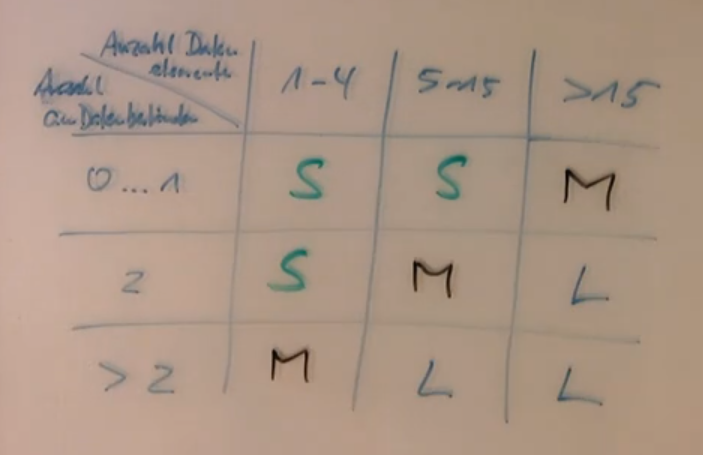 Anzahl Daten
elemente
Anzahl
an Datenbeständen
1-4 5-15 >15
0...1 S S M
2 S M L
>2 M L L